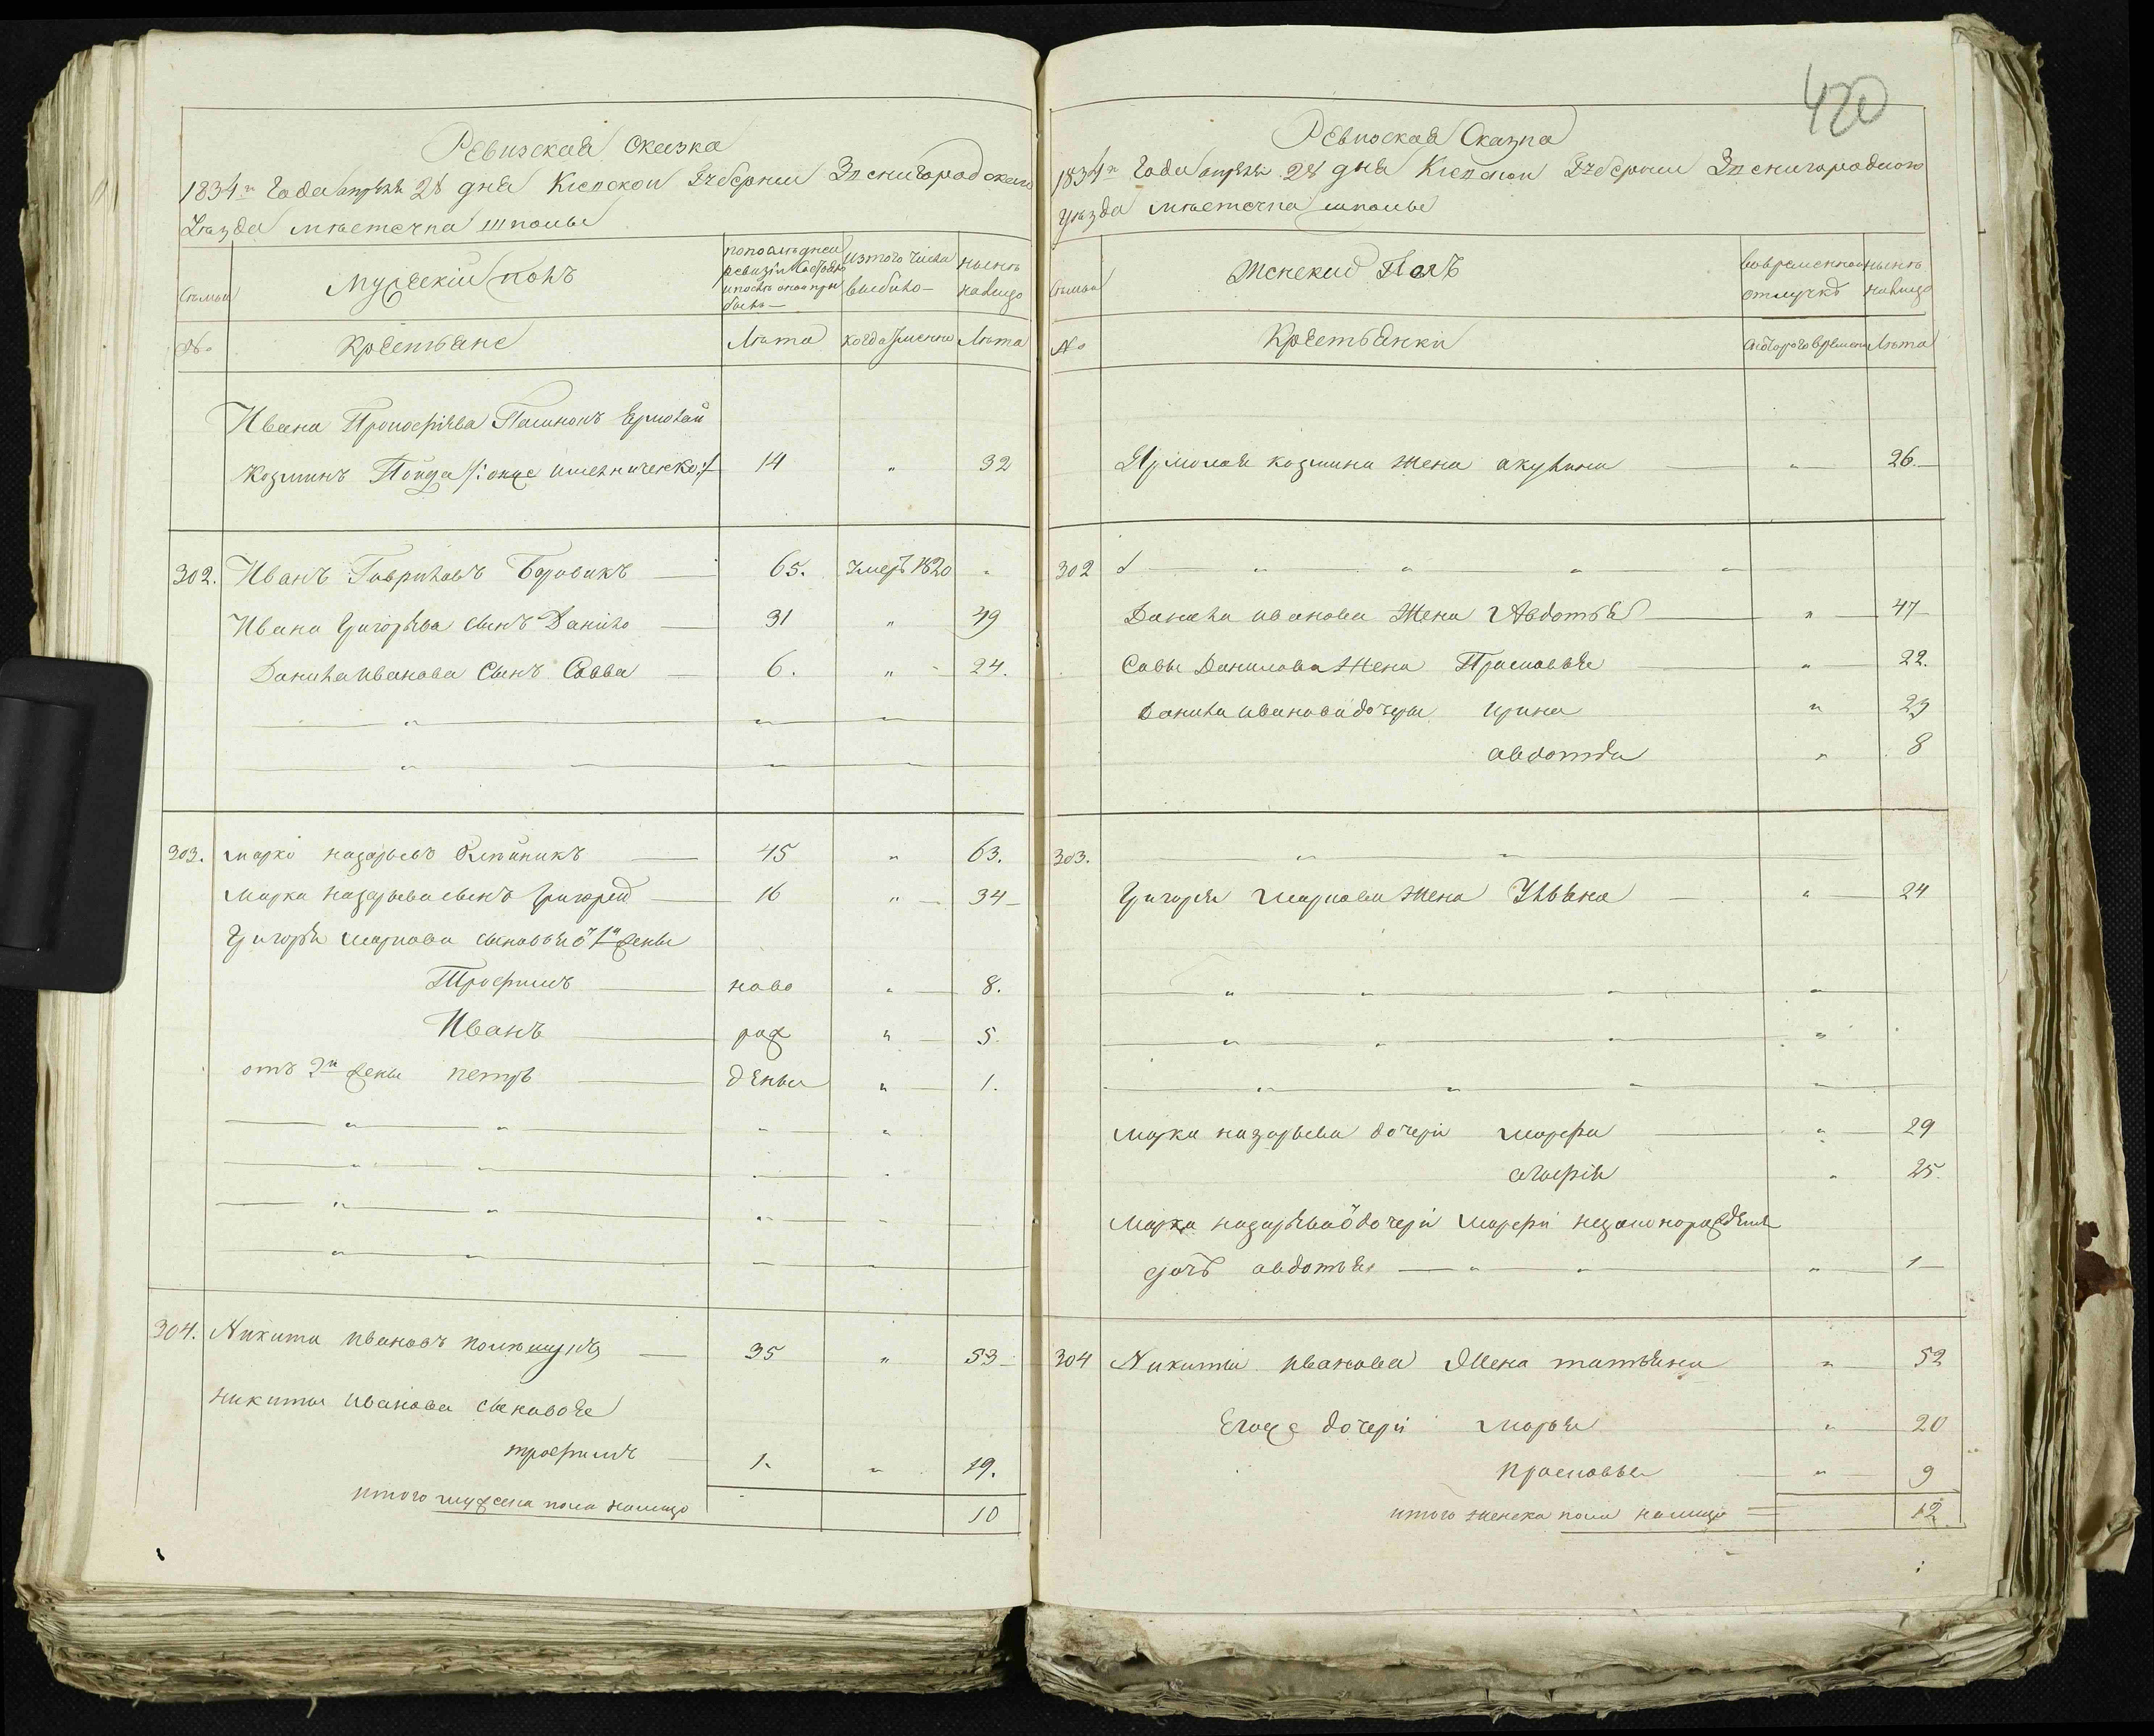 420
Ревизская Сказка
1834го Года апреля 28 дня Киевской Губернии Звенигородского
Уезда местечка шполы
Семьи
Мужеский полъ
по последней ревизии состояло и после оной прибыло
из того числа выбыло
ныне на лицо
№
Крестьяне
Лета
когда именно
Лета
Ивана Прокофиева Пасынокъ Ермолай
Козминъ /: онже :/ 14 „ 32
302. Иванъ Гавриловъ Боровикъ 65. Умеръ 1820 „
Ивана Григорьева сынъ Данило 31 „ 49
Данила Иванова Сынъ Савва 6. „ 24.
303. Марко назарьевъ 45 „ 63.
Марка назарьева сынъ Григорей 16 „ 34
Григорья маркова сыновья от 1й жены
Трофимъ ново „ 8.
Иванъ рож „ 5.
отъ 2й жены петръ денны „ 1.
304. Никита Ивановъ 35 „ 53
никиты Иванова сыновья
трофимъ 1. „ 19.
итого мужеска пола налицо 10
Ревизская Сказка
1834го Года апреля 28 дня Киевской Губернии Звенигородского
уезда местечка шполы
Семьи
Женский Полъ
во временной отлучке
ныне на лицо
№
Крестьянки
с которого времени
Лета
Ярмолая козмина жена акулина „ 26
302 „ „ „ „
Данила иванова Жена Авдотья „ 47
Савы Данилова Жена Прасковья „ 22.
Данила иванова дочери Ирина „ 23
авдотья „ 8
303. „ „
Григорья Маркова жена Ульяна „ 24
Марка назарьева дочери марфа „ 29
агафия „ 25.
Марка назарьева дочери Марфи незаконорожденна
дочь авдотья „ 1
304 Никиты Иванова Жена татьяна „ 52
Егоже дочери марья „ 20
прасковья „ 9
итого женска пола налицо 12